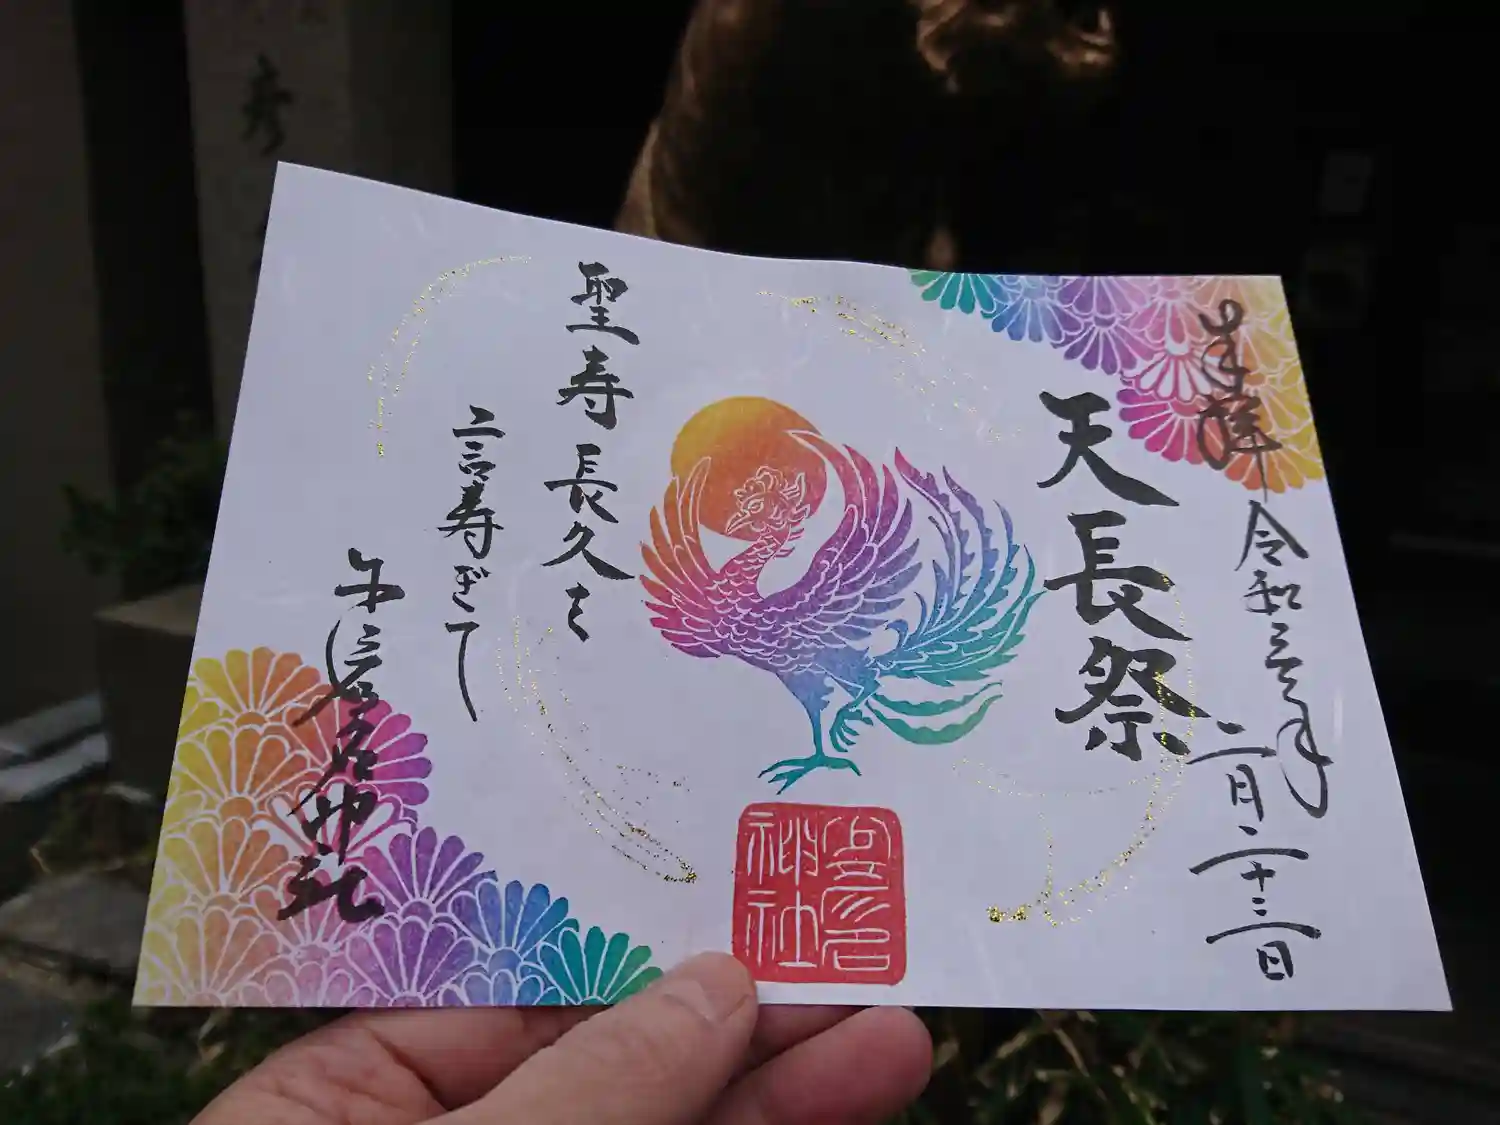 奉拝 令和三年二月二十三日
天長祭
聖寿長久を
言寿ぎて
神社
神社